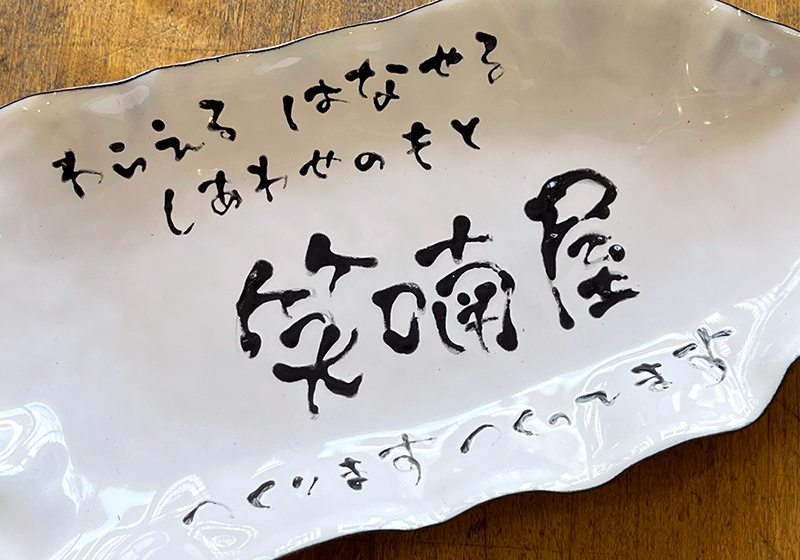 わらえる はなせる
しあわせのもと
笑喃屋
つくります つくってます